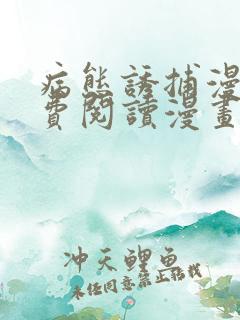 病態誘捕漫
費閱讀漫畫
冲天鲤鱼
未经同意禁止转载